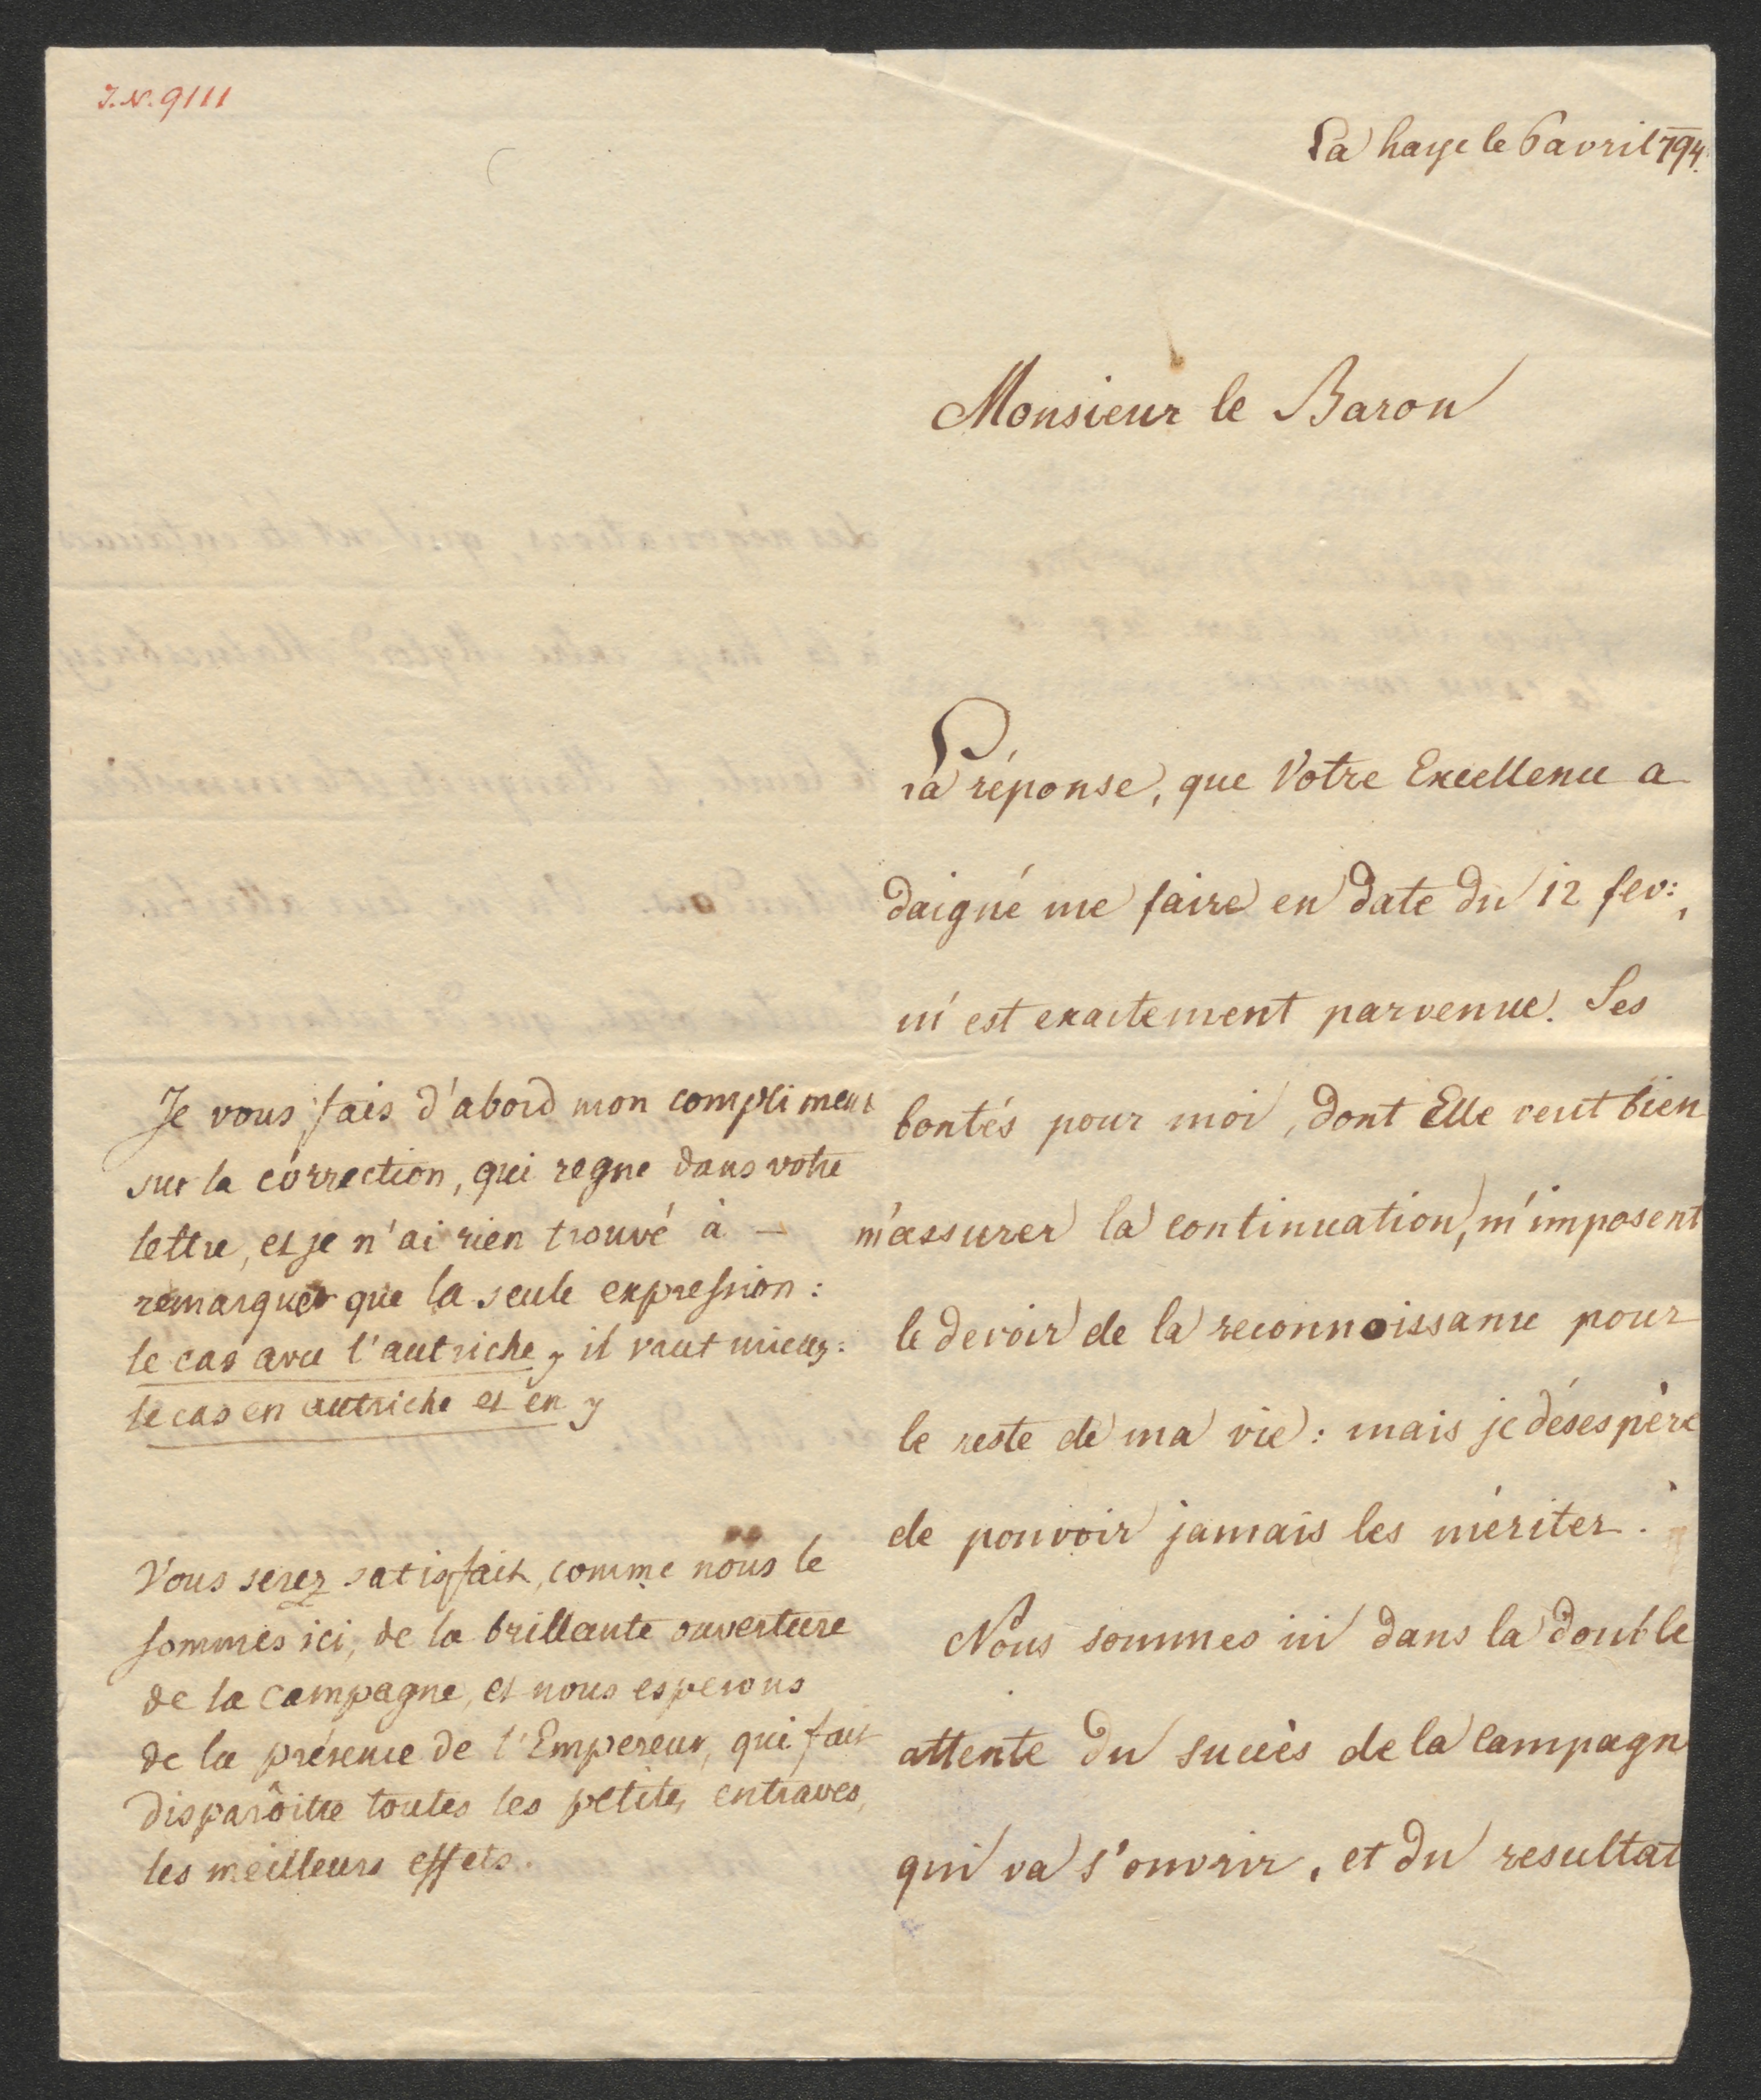 J.N. 9111
La haye le 6 avril 794.
Monsieur le Baron
La réponse, que Votre Excellence a
daigné me faire en date du 12 fev:,
m'est exactement parvenue. Ses
bontés pour moi, dont Elle veut bien
m'assurer la continuation, m'imposent
le devoir de la reconnoissance pour
le reste de ma vie: mais je désespère
de pouvoir jamais les mériter.
Nous sommes ici dans la double
attente du succès de la Campagn
qui va s'ouvrir, et du resultat
Je vous fais d'abord mon compliment
sur la correction, qui regne dans votre
lettre, et je n'ai rien trouvé à —
remarquer que la seule expression:
le cas avec l'autriche, il vaut mieux:
le cas en autriche et en
Vous serez satisfait, comme nous le
sommes ici, de la brillante ouverture
de la campagne, et nous esperons
de la présence de l'Empereur, qui fait
disparôitre toutes les petites entraves,
les meilleurs effets.